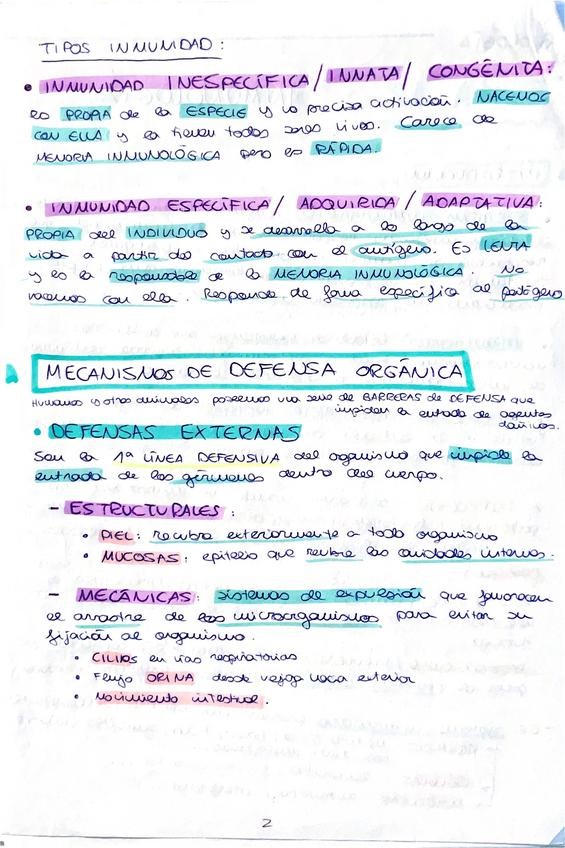 TIPOS INMUNIDAD:
• INMUNIDAD INESPECÍFICA / INNATA / CONGÉNITA:
es PROPIA de la ESPECIE y no precisa activación. NACEMOS
CON ELLA y la tienen todos seres vivos. Carece de
MEMORIA INMUNOLÓGICA pero es RÁPIDA.
• INMUNIDAD ESPECÍFICA / ADQUIRIDA / ADAPTATIVA:
PROPIA del INDIVIDUO y se desarrolla a lo largo de la
vida a partir del contacto con el antígeno. Es LENTA
y es la responsable de la MEMORIA INMUNOLÓGICA. No
nacemos con ella. Responde de forma específica al patógeno
MECANISMOS DE DEFENSA ORGÁNICA
Humanos y otros animales poseemos una serie de BARRERAS de DEFENSA que
impiden la entrada de agentes
dañinos.
• DEFENSAS EXTERNAS
Son la 1ª LÍNEA DEFENSIVA del organismo que impide la
entrada de los gérmenes dentro del cuerpo.
- ESTRUCTURALES:
• PIEL: recubre exteriormente a todo organismo
• MUCOSAS: epitelio que recubre las cavidades internas.
- MECÁNICAS: sistemas de expulsión que favorecen
el arrastre de los microorganismos para evitar su
fijación al organismo.
• CILIOS en vías respiratorias
• Flujo ORINA desde vejiga hacia exterior
• Movimiento intestinal.
2